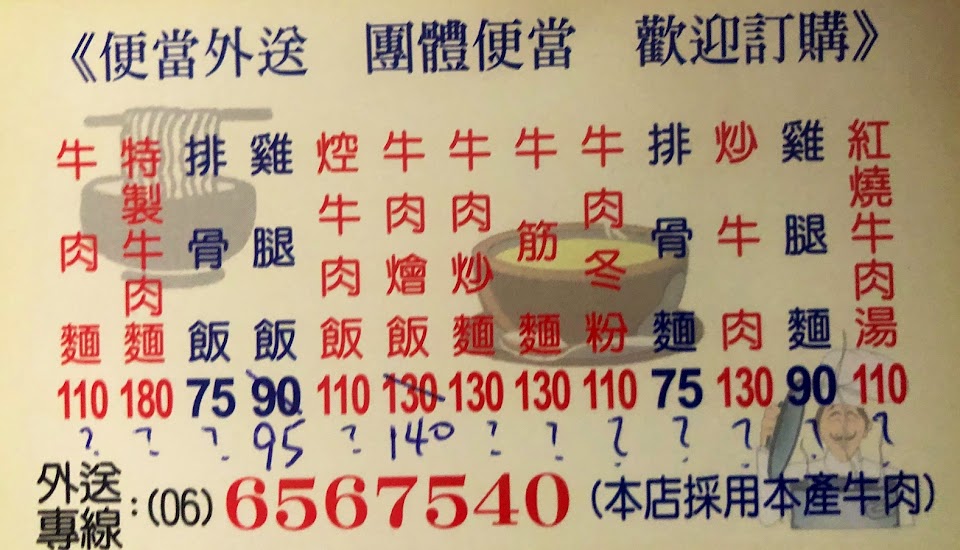 《便當外送 團體便當 歡迎訂購》
牛肉麵
特製牛肉麵
排骨飯
雞腿飯
焢牛肉飯
牛肉燴飯
牛肉炒麵
牛筋麵
牛肉冬粉
排骨麵
炒牛肉
雞腿麵
紅燒牛肉湯
110 180 75 90 110 130 130 130 110 75 130 90 110
? ? ? 95 ? 140 ? ? ? ? ? ? ?
外送專線:(06)6567540(本店採用本產牛肉)